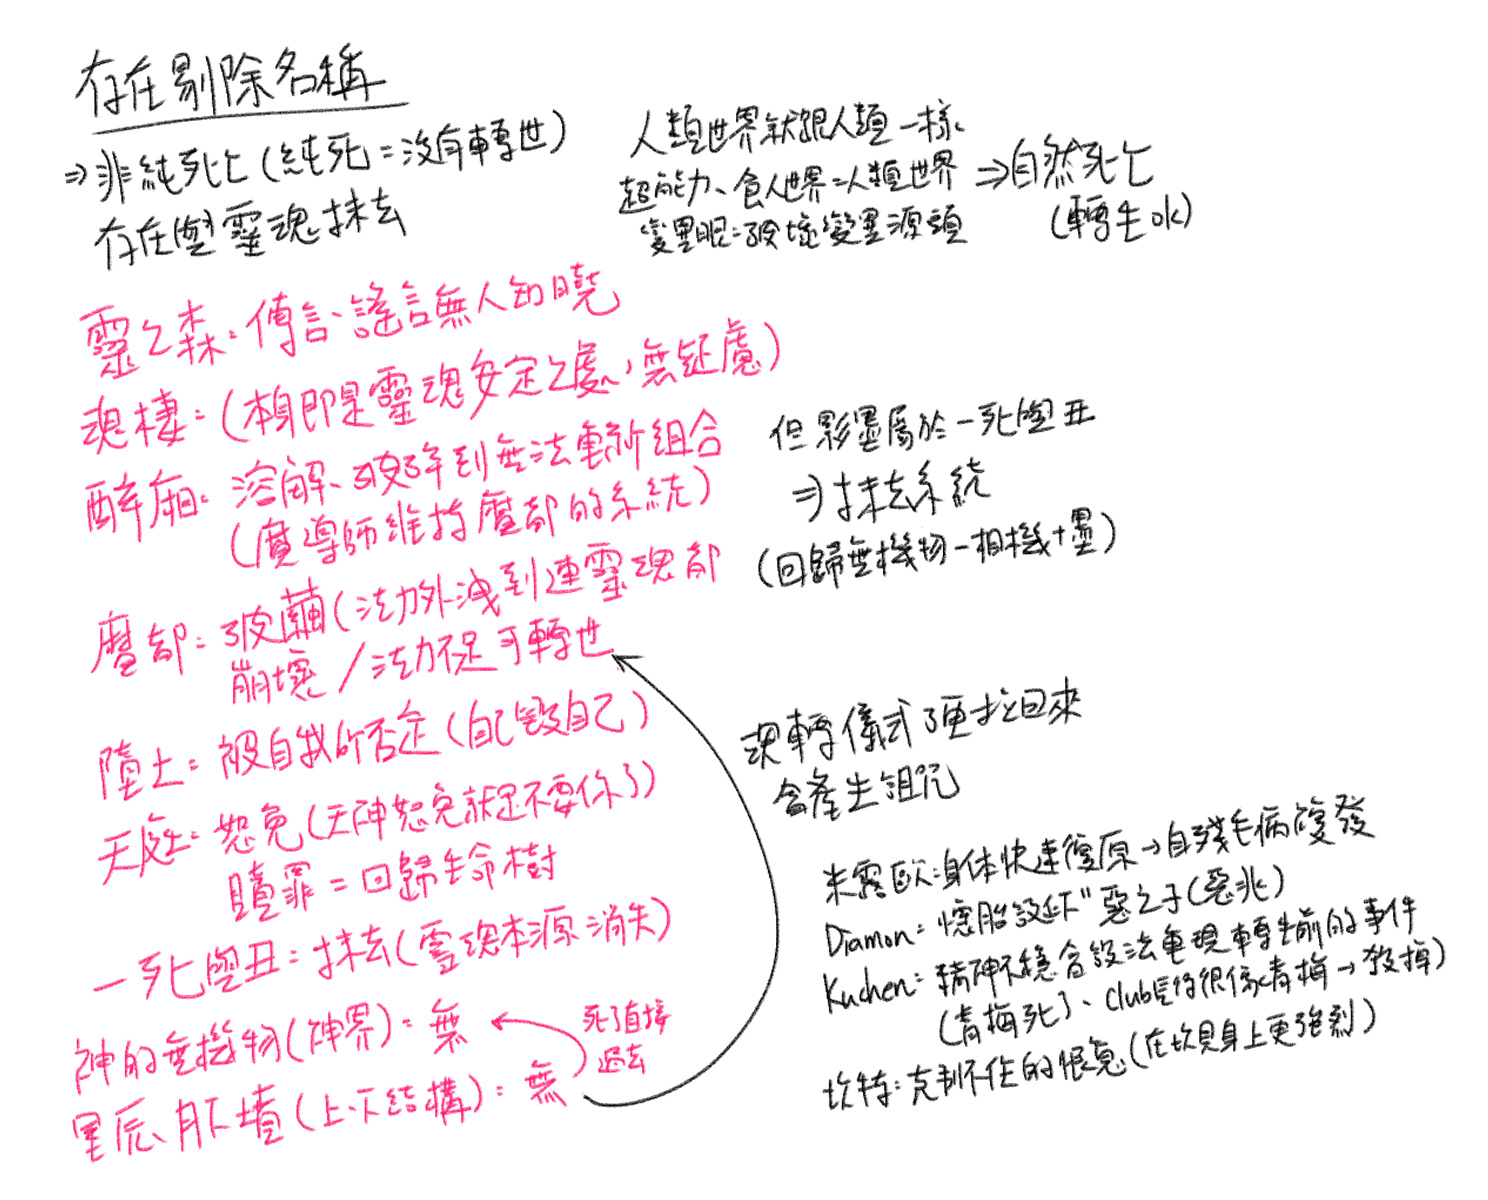 存在剔除名稱
⇒非純死亡(純死=沒有轉世)
存在與靈魂抹去
人類世界就跟人類一樣
超能力、食人世界=人類世界
變異眼=破壞變異源頭
⇒自然死亡
(轉生水)
靈之森:傳言、謠言無人知曉
魂棲:(本身即是靈魂安定之處,無疑慮)
醉廂:溶解、破碎到無法重新組合
(魔導師維持魔都的系統)
但影墨屬於一死與丑
⇒抹去系統
(回歸無機物-相機+墨)
魔都:破繭(法力外洩到連靈魂都
崩壞/法力不足可轉世
墮土:被自我所否定(自己毀自己)
天庭:恕免(天神恕免就是不要你了)
贖罪=回歸生命樹
一死與丑:抹去(靈魂本源消失)
神的無機物(神界):無
死了直接
過去
星辰、月下墳(上下結構):無
魂轉儀式硬找回來
會產生詛咒
米露歐:身体快速復原→自殘毛病復發
Diamon:懷胎設下"惡之子(惡兆)
Kuchen:精神不穩會設法重現轉生前的事件
(青梅死)、Club長得很像青梅→殺掉)
坎特:克制不住的恨意(在坎貝身上更強烈)